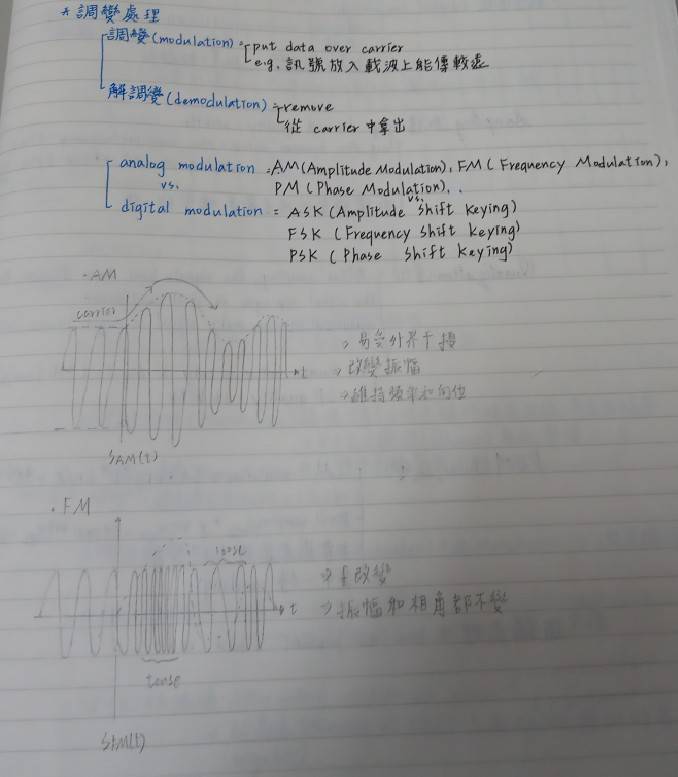 * 調變處理
調變(modulation): put data over carrier
e.g. 訊號放入載波上能傳較遠
解調變(demodulation): remove
從 carrier 中拿出
analog modulation: AM(Amplitude Modulation), FM(Frequency Modulation),
vs. PM(Phase Modulation).
vs.
digital modulation = ASK(Amplitude Shift Keying)
FSK (Frequency Shift Keying)
PSK (Phase Shift Keying)
- AM
carrier
→ 易受外界干擾
t → 改變振幅
→ 維持頻率和向位
SAM(t)
. FM
loose
→ f 改變
t → 振幅和相角都不變
tense
SFM(t)